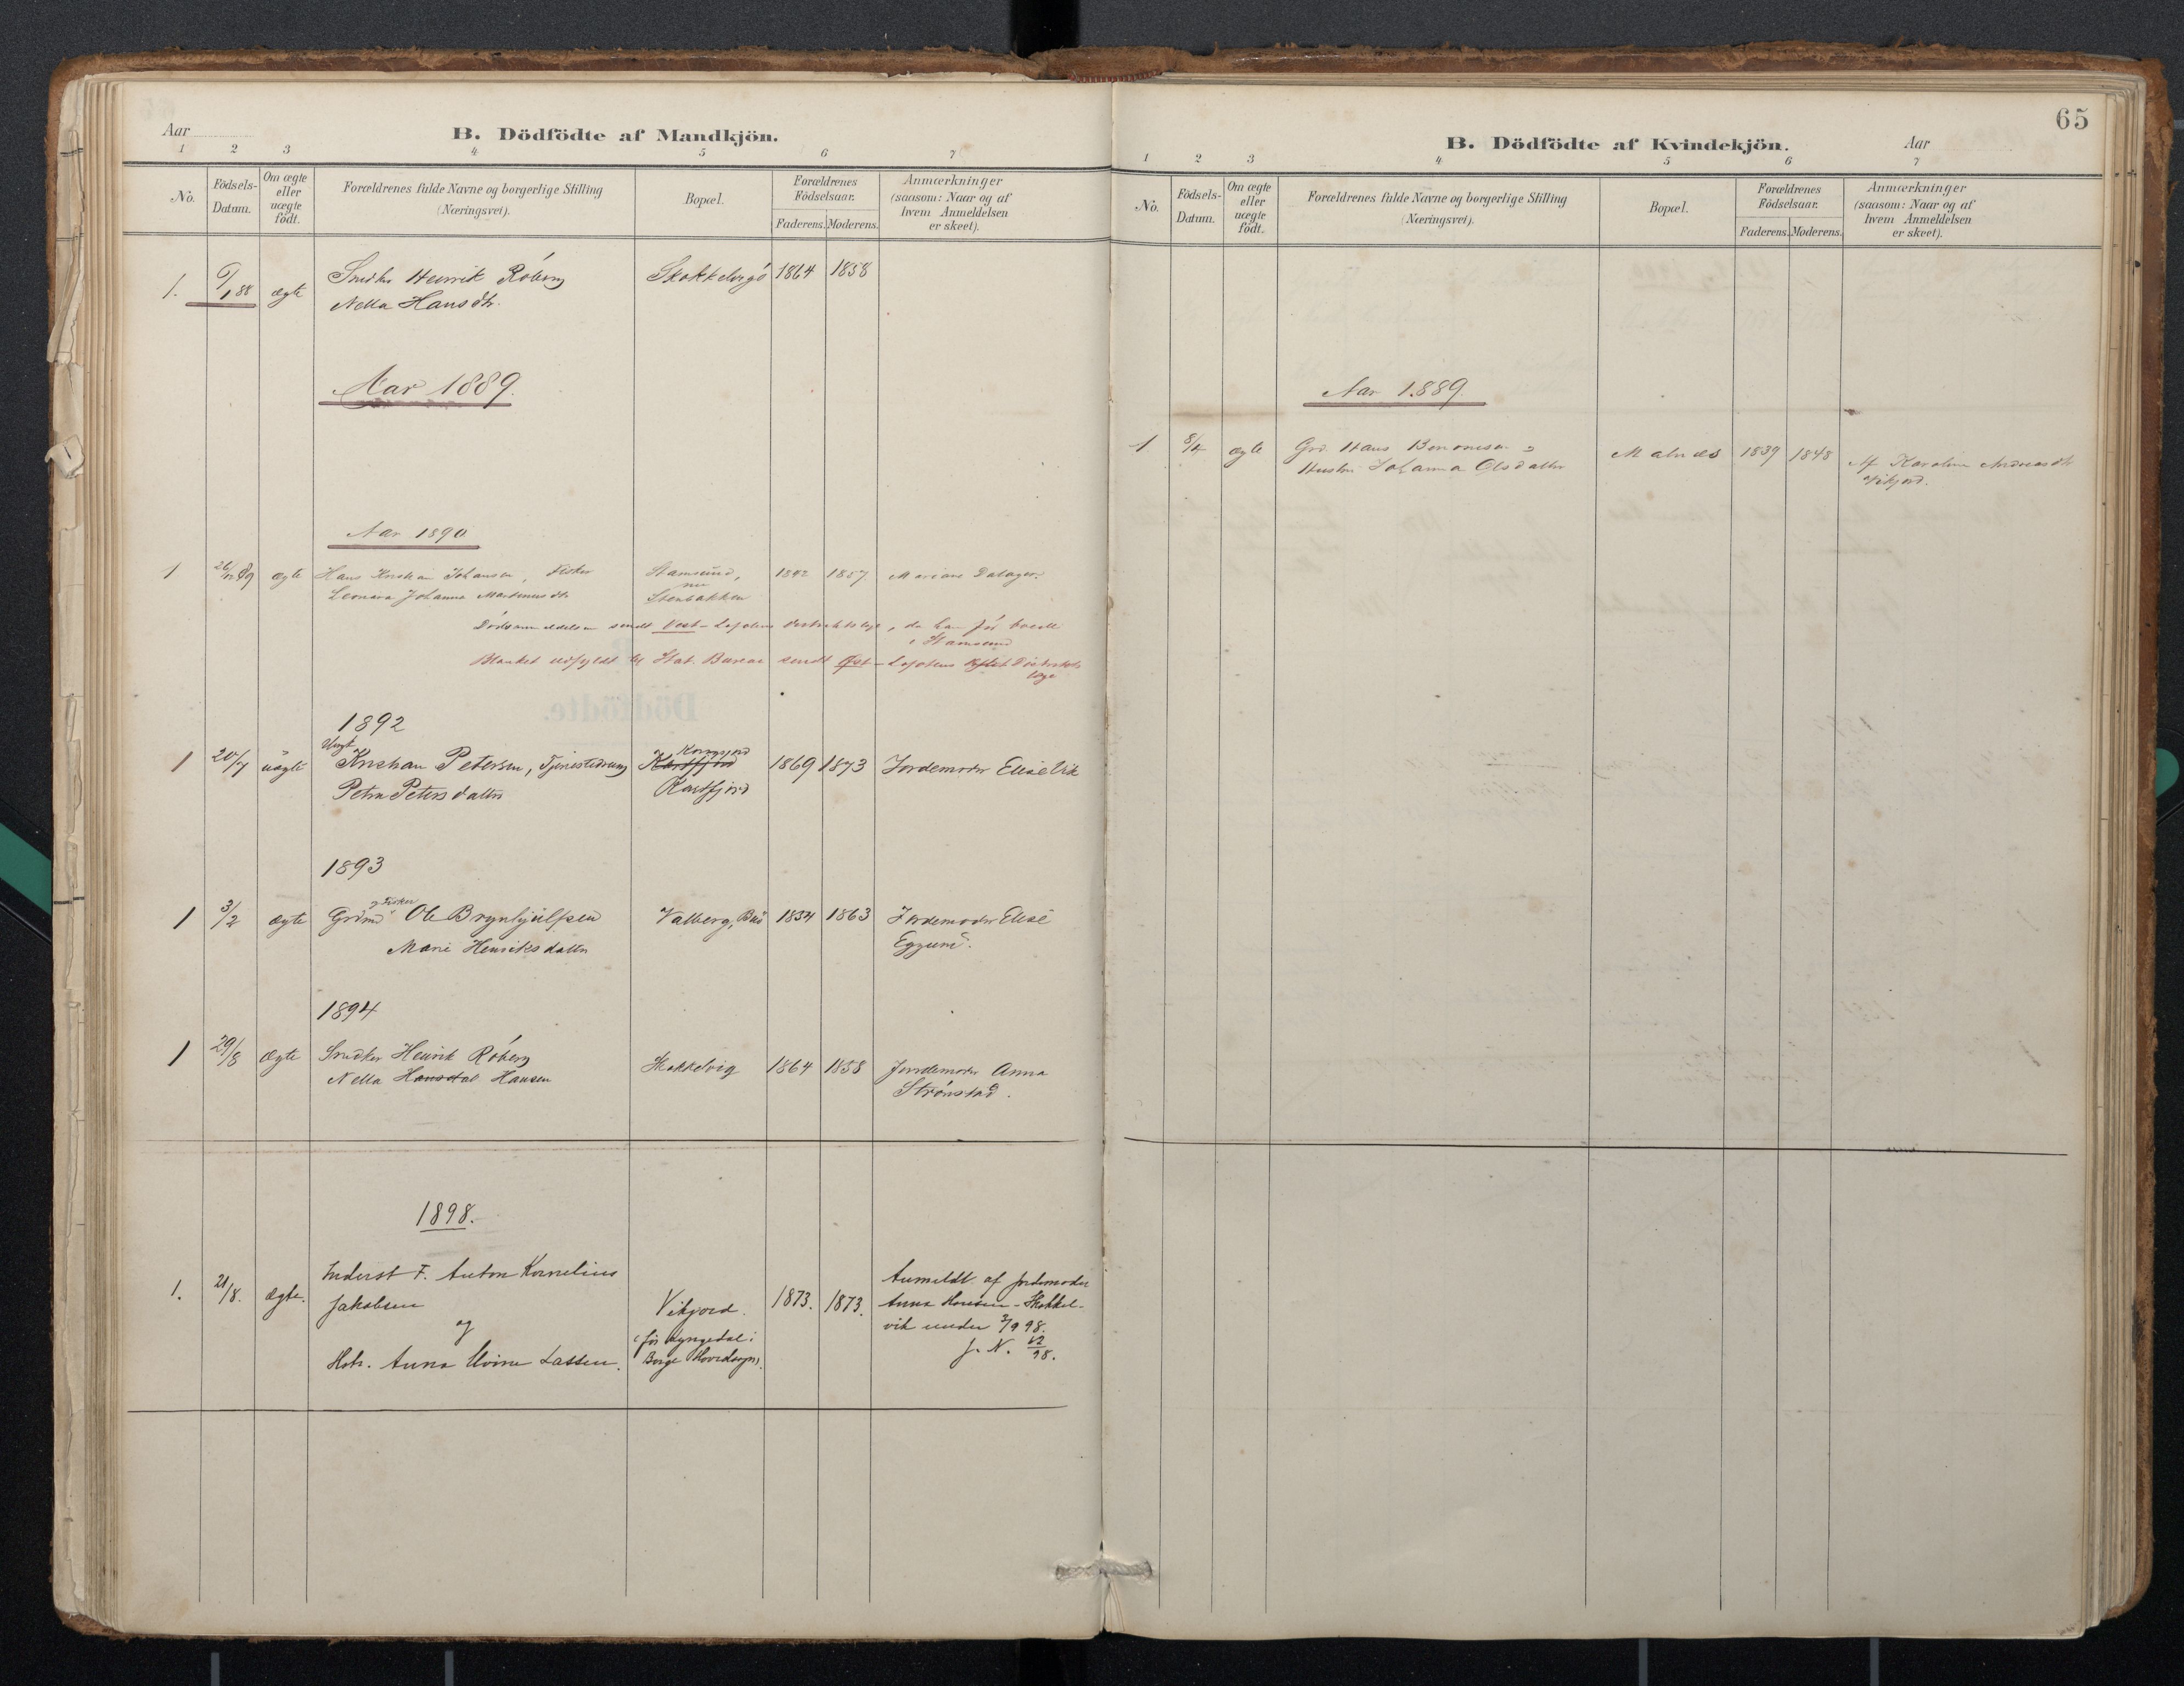 65
Aar
B. Dödfödte af Mandkjön.
1 2 3 4 5 6 7
No.
Födsels-Datum.
Om ægte eller uægte födt.
Forældrenes fulde Navne og borgerlige Stilling
(Næringsvei).
Bopæl.
Forældrenes Födselsaar.
Faderens. Moderens.
Anmærkninger
(saasom: Naar og af
hvem Anmeldelsen
er skeet).
1. 6/1 88 ægte Snedker Henrik Röberg
Nella Hansdtr.
1864 1858
Aar 1889.
Aar 1890
1 26/12 89 ægte Hans Kristian Johansen, Fisker
Leonara Johanna Martinusdtr
Stamsund,
nu
Stenbakken
1842 1857 Mariane Datager.
Dödsanmeldelsen sendt Vest-Lofotens Distriktslæge, da han för boede
i Stamsund
Blanket udfyldt til Stat. Bureau sendt Öst-Lofotens Distrikts
læge
1892
Ungk.
1 20/7 uægte Kristian Petersen, Tjenestedreng
Petra Petersdatter
Kartfjord
1869 1873 Jordemoder Elise Vik
1893
og Fisker
1 3/2 ægte Grdmd Ole Brynhjulfsen
Marie Henriksdatter
Valberg, 1834 1863 Jordemoder Elise
Eggum.
1894
1 29/8 ægte Snedker Henrik Röberg
Nella Hansdat Hansen
Skokkelvig 1864 1858 Jordemoder Anna
Strönstad.
1898.
1. 21/8. ægte. Inderst F. Anton Kornelius
Jakobsen
og
Hstr. Anna Lassen.
Vikjord.
(för Lyngedal i
Borge Hovedsogn).
1873. 1873.
Anmeldt af Jordemoder
Anna Hansen - Skokkel-
vik under 2/9 98.
J. N. 62/98.
B. Dödfödte af Kvindekjön.
Aar
1 2 3 4 5 6 7
No.
Födsels-Datum.
Om ægte eller uægte födt.
Forældrenes fulde Navne og borgerlige Stilling
(Næringsvei).
Bopæl.
Forældrenes Födselsaar.
Faderens. Moderens.
Anmærkninger
(saasom: Naar og af
hvem Anmeldelsen
er skeet).
Aar 1889.
1 8/4 ægte Grd. Hans Benonisen og
Hustru Johanna Olsdatter
Malnæs 1839 1848 Af Karoline Andreasdtr
Vikjord.